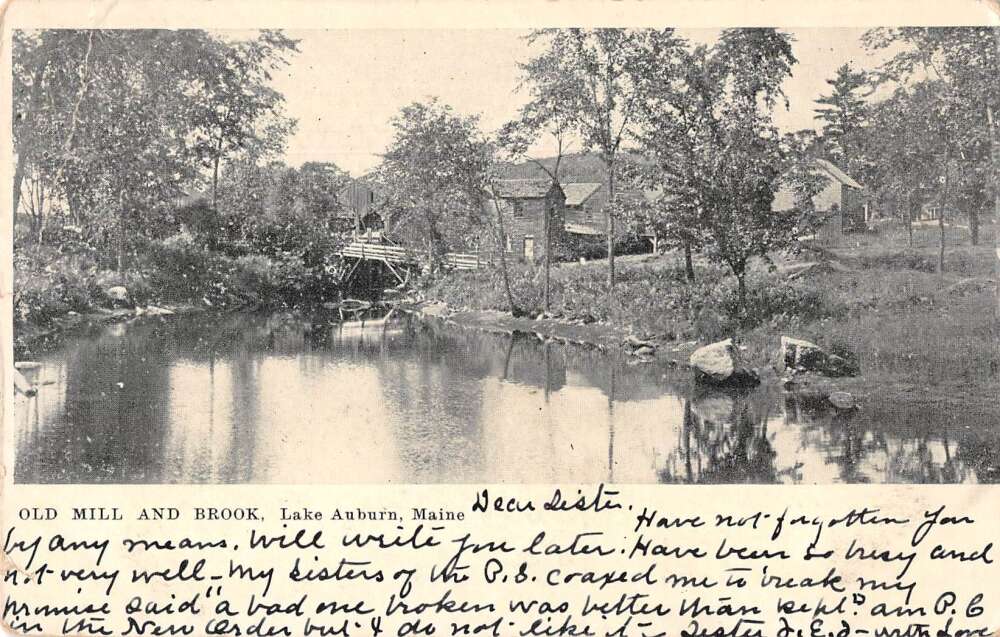 OLD MILL AND BROOK, Lake Auburn, Maine
Dear Sister.
Have not forgotten you
by any means. Will write you later. Have been so busy and
not very well - My Sisters of the P.S. coaxed me to break my
promise said "a bad one broken was better than kept" am P.C
in the New Order but I do not like it - Sister with Love